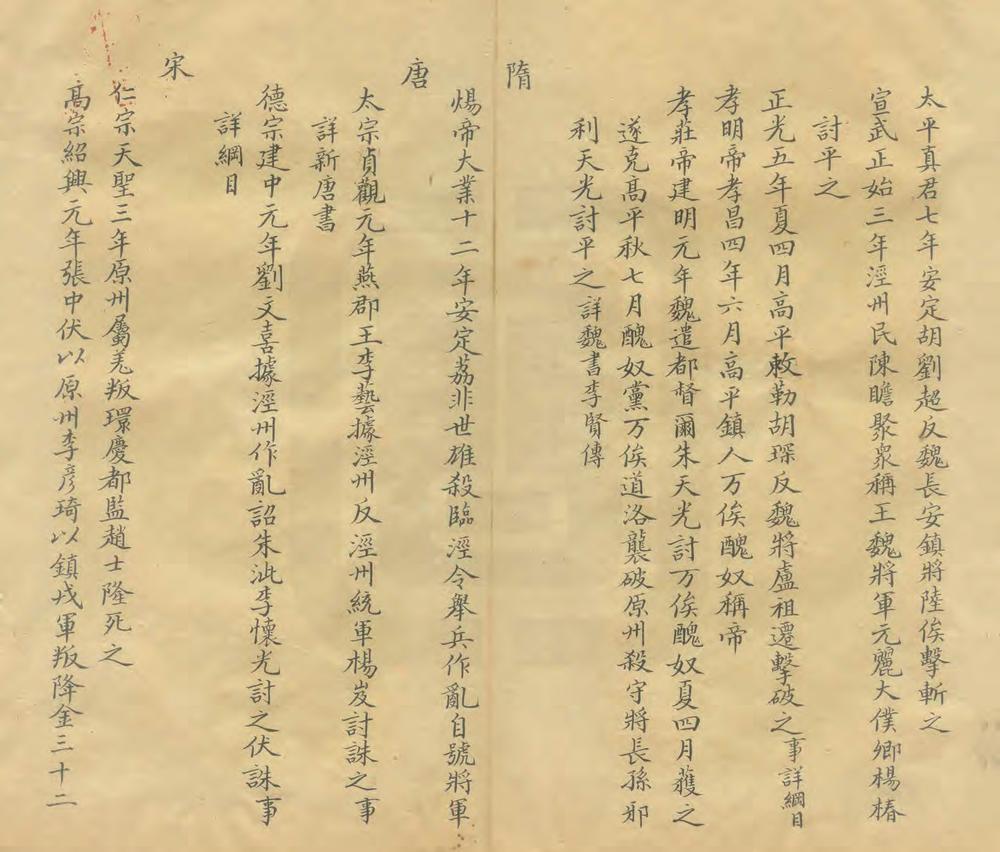 太平真君七年安定胡劉超反魏長安鎮將陸俟擊斬之
宣武正始三年涇州民陳瞻聚衆稱王魏將軍元麗大僕卿楊椿
討平之
正光五年夏四月高平敕勒胡琛反魏將盧祖遷擊破之事詳綱目
孝明帝孝昌四年六月高平鎮人万俟醜奴稱帝
孝莊帝建明元年魏遣都督爾朱天光討万俟醜奴夏四月蒦之
遂克高平秋七月醜奴黨万俟道洛襲破原州殺守將長孫邪
利天光討平之詳魏書李賢傳
隋
煬帝大業十二年安定荔非世雄殺臨涇令舉兵作亂自號將軍
唐
太宗貞觀元年燕郡王李藝據涇州反涇州統軍楊岌討誅之事
詳新唐書
德宗建中元年劉文喜據涇州作亂詔朱泚李懷光討之伏誅事
詳綱目
宋
仁宗天聖三年原州屬羌叛環慶都監趙士隆死之
高宗紹興元年張中伏以原州李彥琦以鎮戎軍叛降金三十二